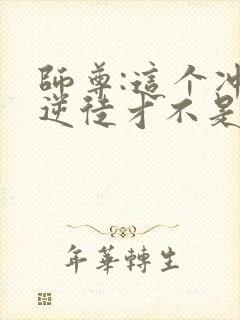 師尊:這个冲
逆徒才不是
年華轉生